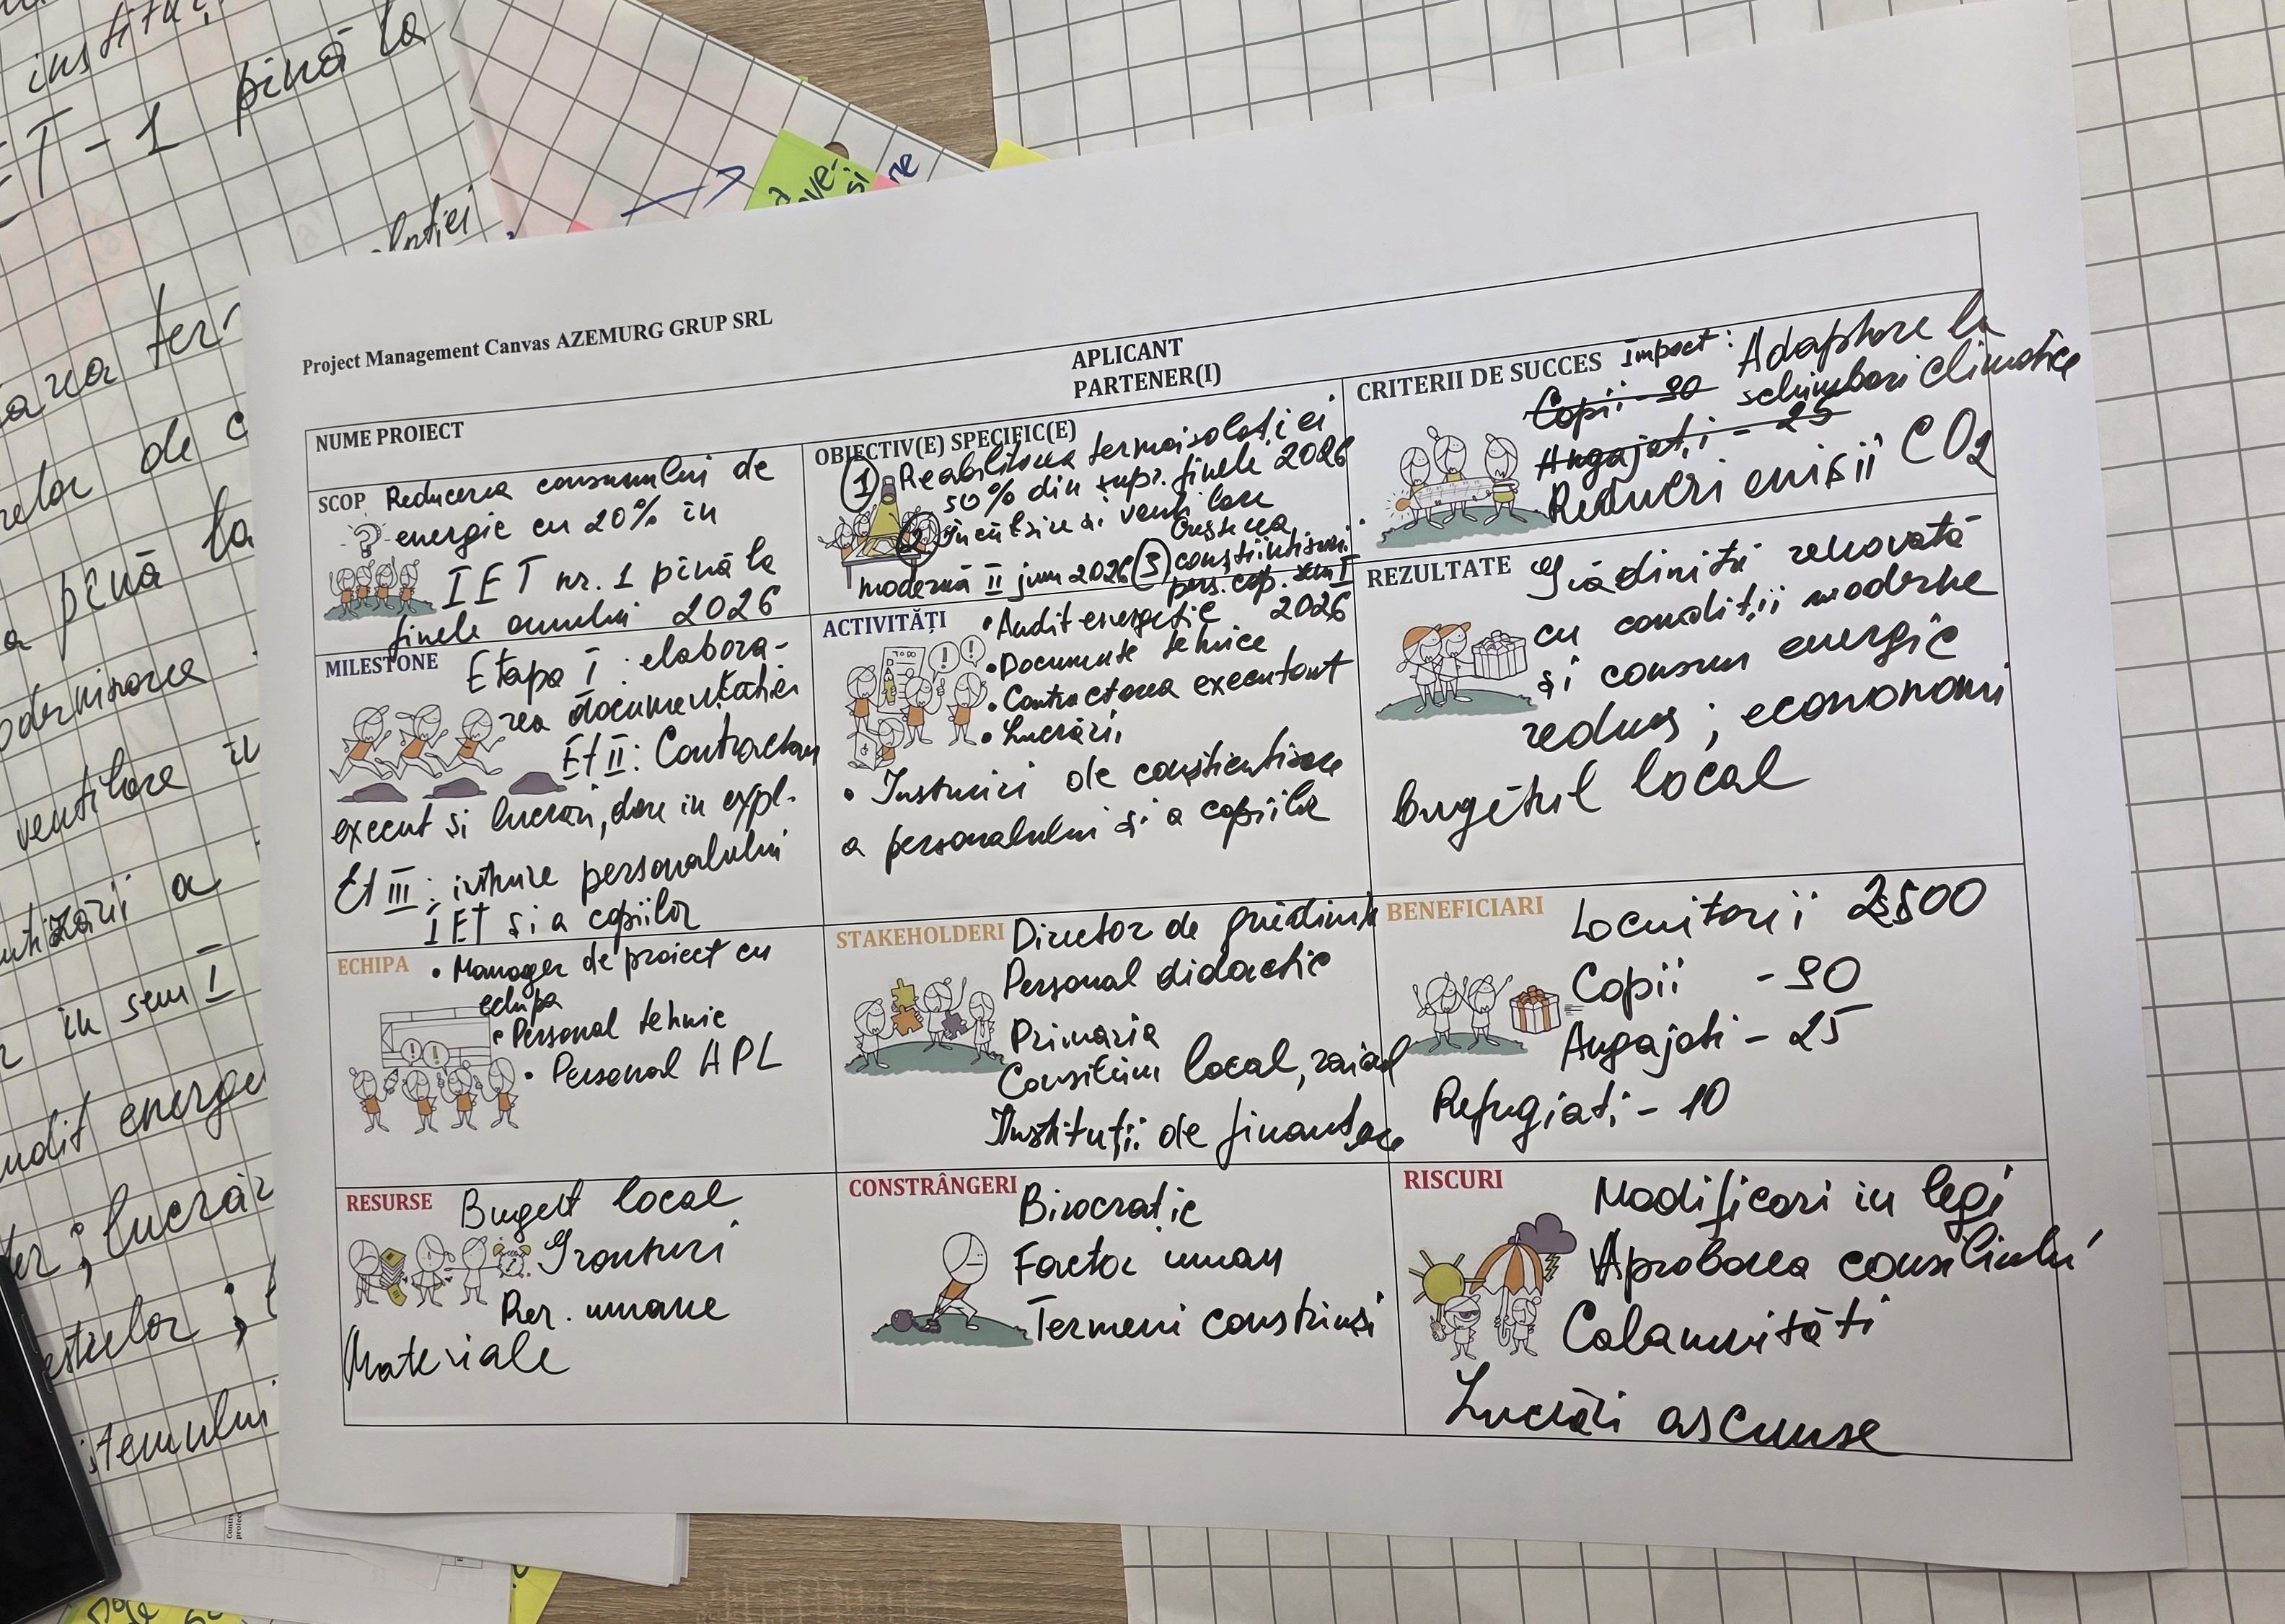 institu
ET-1 pînă la
Project Management Canvas AZEMURG GRUP SRL
APLICANT
PARTENER(I)
NUME PROIECT
SCOP Reducerea consumului de
energie cu 20% în
IET nr. 1 pînă la
finele anului 2026
OBIECTIV(E) SPECIFIC(E)
1 Reabilitarea termoizolației
50% din supr. finele 2026
2 încălzire și ventilare
modernă II jum 2026 3 Creșterea
conștiintizării
pers. cop. sem I
2026
CRITERII DE SUCCES Impact: Adaptare la
Copii - 90 schimbari climatice
Angajați - 25
Reduceri emisii CO2
MILESTONE Etapa I: elabora-
rea documentației
Et II: Contractare
execut și lucrări, dare in expl.
Et III: intruire personalului
IET și a copiilor
ACTIVITĂȚI
• Audit energetic
• Documente tehnice
• Contractarea executant
• Lucrări
• Instruiri de conștientizare
a personalului și a copiilor
REZULTATE Grădiniță renovată
cu condiții moderne
și consum energie
redus; economii
bugetul local
ECHIPA • Manager de proiect cu
echipa
• Personal tehnic
• Personal APL
STAKEHOLDERI Director de grădiniță
Personal didactic
Primăria
Consiliu local, raional
Instituții de finanțare
BENEFICIARI Locuitorii 2500
Copii - 90
Angajati - 25
Refugiați - 10
RESURSE Buget local
Granturi
Rer. umane
Materiale
CONSTRÂNGERI Birocrație
Factor uman
Termeni constrinși
RISCURI Modificari in legi
Aprobarea consiliului
Calamități
Lucrări ascunse
de
pînă la
ventilare
a
in sem I
audit energe
; lucrăr